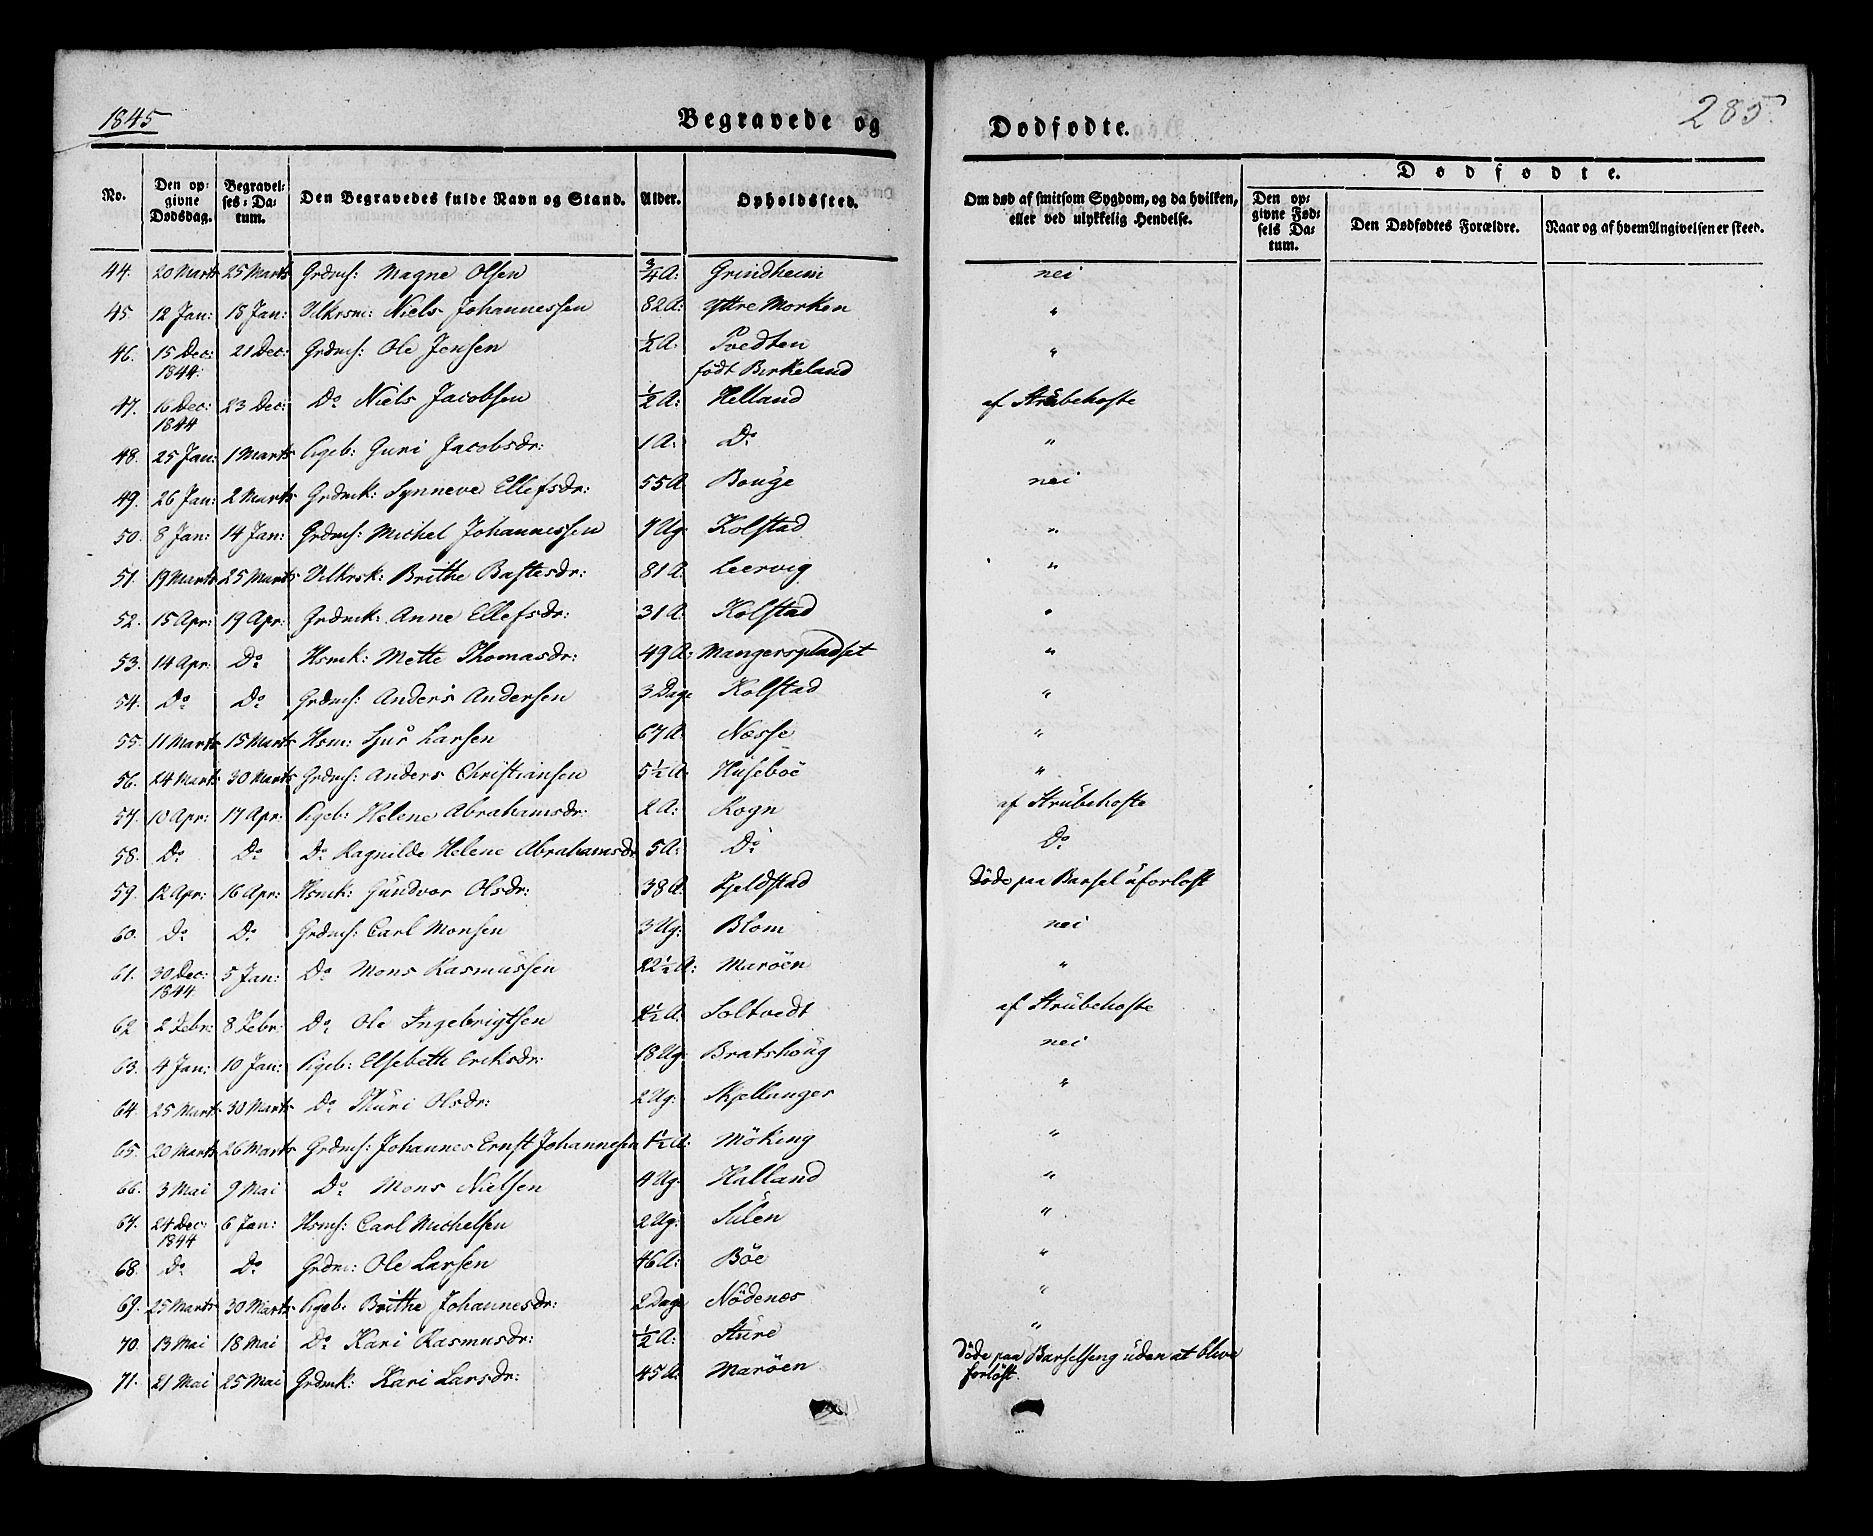 1845
Begravede og Dødfødte.
285.
No. Den opgivne Dødsdag. Begravelses-Datum. Den Begravedes fulde Navn og Stand. Alder. Opholdssted. Om død af smitsom Sygdom, og da hvilken, eller ved ulykkelig Hendelse. Dødfødte. Den opgivne Fødsels Datum. Den Dødfødtes Forældre. Naar og af hvem Angivelsen er skeed.
44. 20 Marts 25 Marts Grdms: Magne Olsen 3/4 A: Grindheim nei
45. 12 Jan: 18 Jan: Vilkrsm: Niels Johannessen 82 A: Yttre Morken "
46. 15 Dec: 1844. 21 Dec: Grdms: Ole Jensen 1/2 A: Tvedten født Birkeland "
47. 16 Dec: 1844 23 Dec: Do Niels Jacobsen 1/2 A: Helland af Strübehoste
48. 25 Jan: 1 Marts Pigeb: Guri Jacobsdr: 1 A: Do "
49. 26 Jan: 2 Marts Grdmk: Synneve Ellefsdr: 55 A Bouge nei
50. 8 Jan: 14 Jan: Grdms: Michel Johannessen 7 Ug. Kolstad "
51. 19 Marts 25 Marts Vilkrsk: Brithe Bastesdr: 81 A Leervig "
52. 15 Apr: 19 Apr: Grdmk: Anne Ellefsdr: 31 A. Kolstad "
53. 14 Apr: Do Hsmk: Mette Thomasdr: 49 A: Mangerspladset "
54. Do Do Grdms: Anders Andersen 3 Dage Kolstad "
55. 11 Marts 15 Marts Hsm: Sjur Larsen 67 A. Næsse "
56. 24 Marts 30 Marts Grdms: Anders Christiansen 5 1/2 A: Huseböe "
57. 10 Apr: 17 Apr: Pigeb: Helene Abrahamsdr: 2 A: Rogn af Strübehoste
58. Do Do Do Ragnilde Helene Abrahamsdr 5 A: Do Do
59. 12 Apr: 16 Apr: Hsmk: Gündvor Olsdr: 38 A. Fjeldstad Döde paa Barsel üforlöst
60. Do Do Grdms: Carl Monsen 3 Ug: Blom nei
61. 30 Dec: 1844. 5 Jan: Do Mons Rasmüssen 22 1/2 A: Maröen "
62 2 Febr: 8 Febr: Do Ole Ingebrigtsen 2 1/2 A. Soltvedt af Strübehoste
63. 4 Jan: 10 Jan: Pigeb: Elsebeth Eriksdr: 18 Ug: Bratshoüg nei
64. 25 Marts 30 Marts Do Thüri Olsdr: 2 Ug: Skjellanger "
65. 20 Marts 26 Marts Grdms: Johannes Ernst Johannesen 1 1/2 A: Möking "
66. 3 Mai 9 Mai Do Mons Nielsen 4 Ug. Halland "
67. 24 Dec: 1844 6 Jan: Hsms: Carl Michelsen 2 Ug: Sülen "
68. Do Do Grdm: Ole Larsen 46 A: Böe "
69. 25 Marts 30 Marts Pigeb. Brithe Johannesdr: 2 Dage Nödenes "
70. 13 Mai 18 Mai Do Kari Rasmusdr: 1/2 A: Stüre "
71. 21 Mai 25 Mai Grdmk: Kari Larsdr: 45 A: Maröen Döde paa Barselseng üden at blive forlöst.